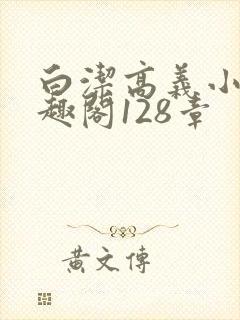 白潔高義小
趣閣128章
黃文傳